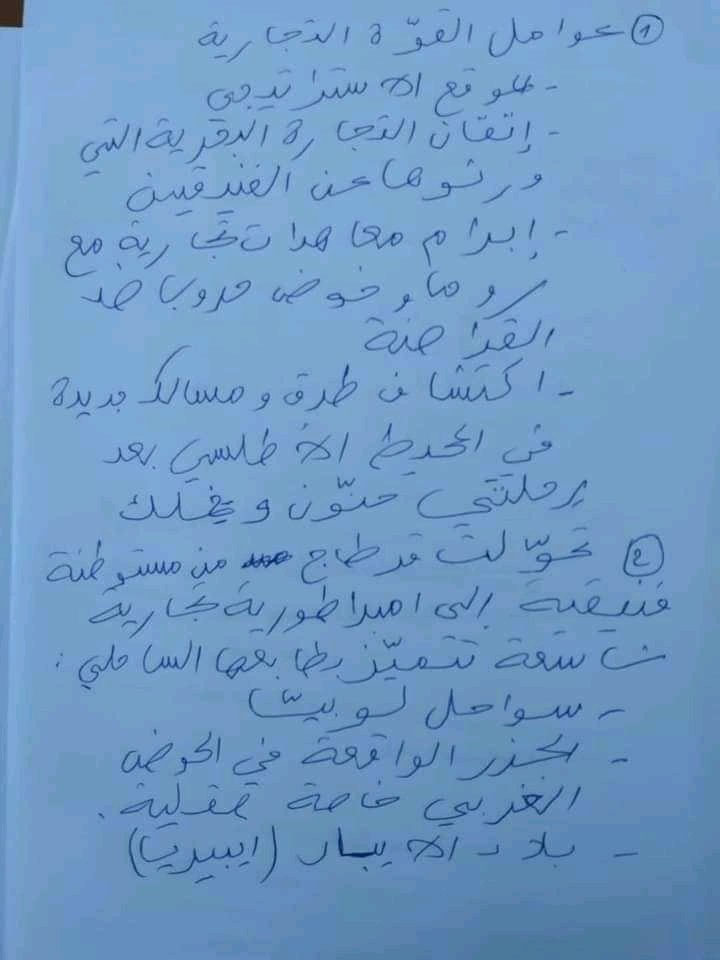 ① عوامل القوّة التجارية
- الموقع الاستراتيجي
- إتقان التجارة البحرية التي
ورثوها عن الفنيقيين
- إبرام معاهدات تجارية مع
روما وخوض حروب ضد
القراصنة
- اكتشاف طرق ومسالك جديدة
في المحيط الأطلسي بعد
رحلتي حنّون وخملك
② تحوّلت قرطاج من مستوطنة
فنيقية إلى امبراطورية تجارية
شاسعة تتميّز بطابعها الساحلي:
- سواحل لوبيّا
- الجزر الواقعة في الحوض
الغربي خاصة صقلية.
- بلاد الايبار (ايبيريا)